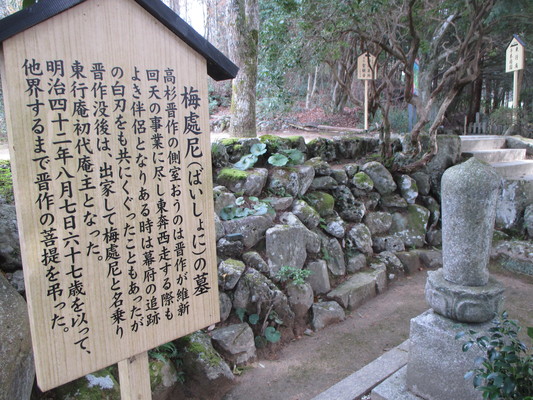 梅處尼（ばいしょに）の墓
高杉晋作の側室おうのは晋作が維新
回天の事業に尽し東奔西走する際も
よき伴侶となりある時は幕府の追跡
の白刃をも共にくぐったこともあったが
晋作没後は、出家して梅處尼と名乗り
東行庵初代庵主となった。
明治四十二年八月七日六十七歳を以って、
他界するまで晋作の菩提を弔った。